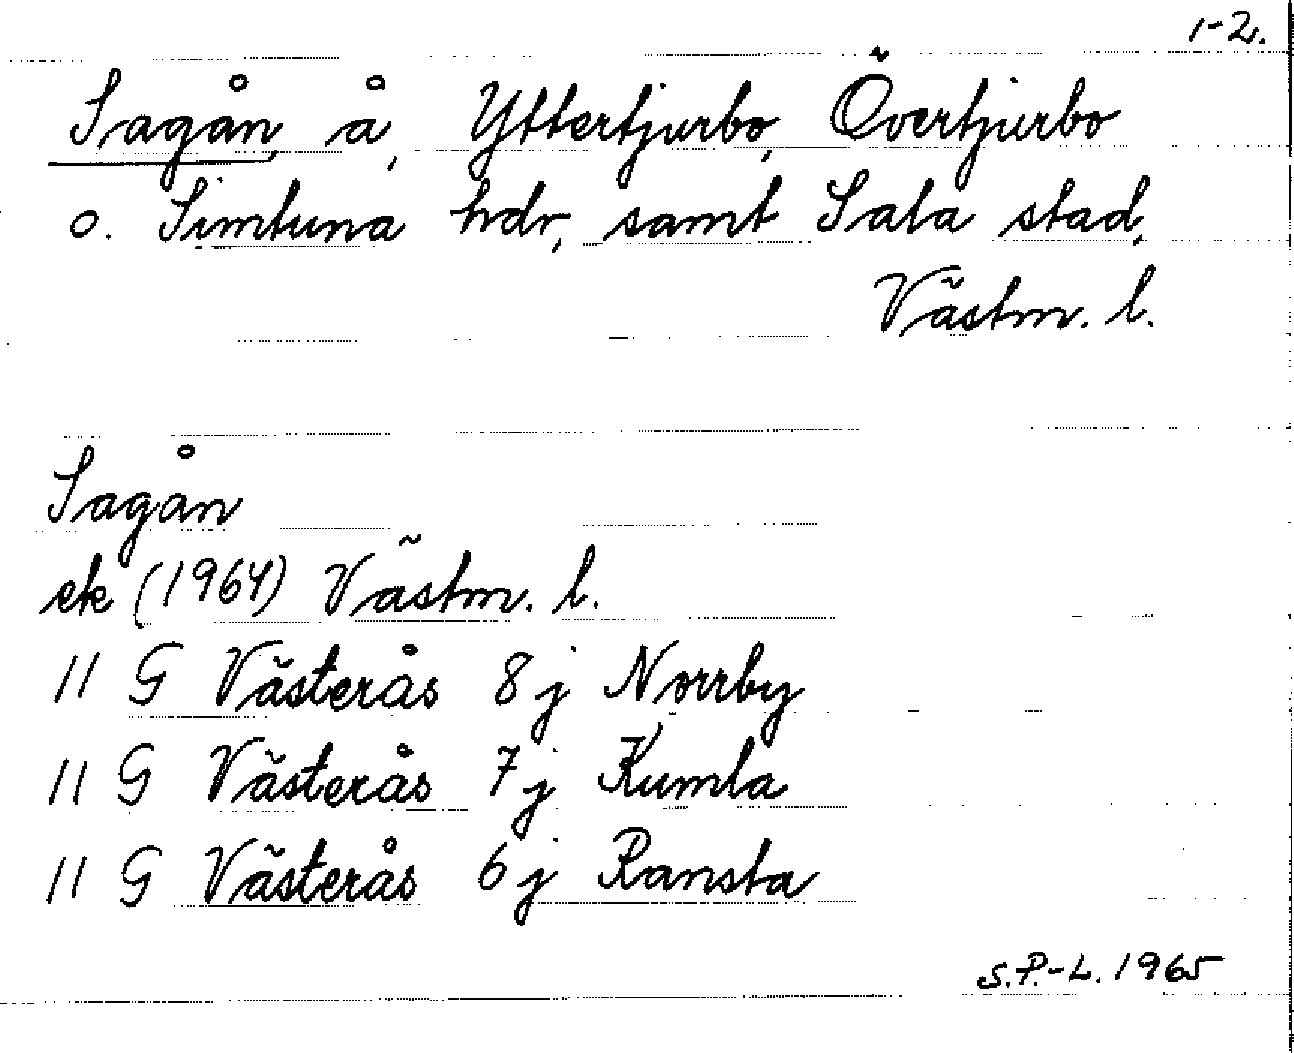 1-2.
Sagån, å, Yttertjurbo, Övertjurbo
o. Simtuna hdr, samt Sala stad,
Västm. l.
Sagån
ek (1964) Västm. l.
11 G Västerås 8 j Norrby
11 G Västerås 7 j Kumla
11 G Västerås 6 j Ransta
S.P.-L. 1965